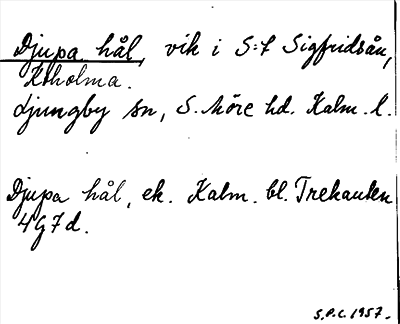 Djupa hål, vik i S:t Sigfridsån,
Ktholma.
Ljungby sn, S. Möre hd. Kalm. l.
Djupa hål, ek. Kalm. bl. Trekanten
4G7d.
S.P.C. 1957.